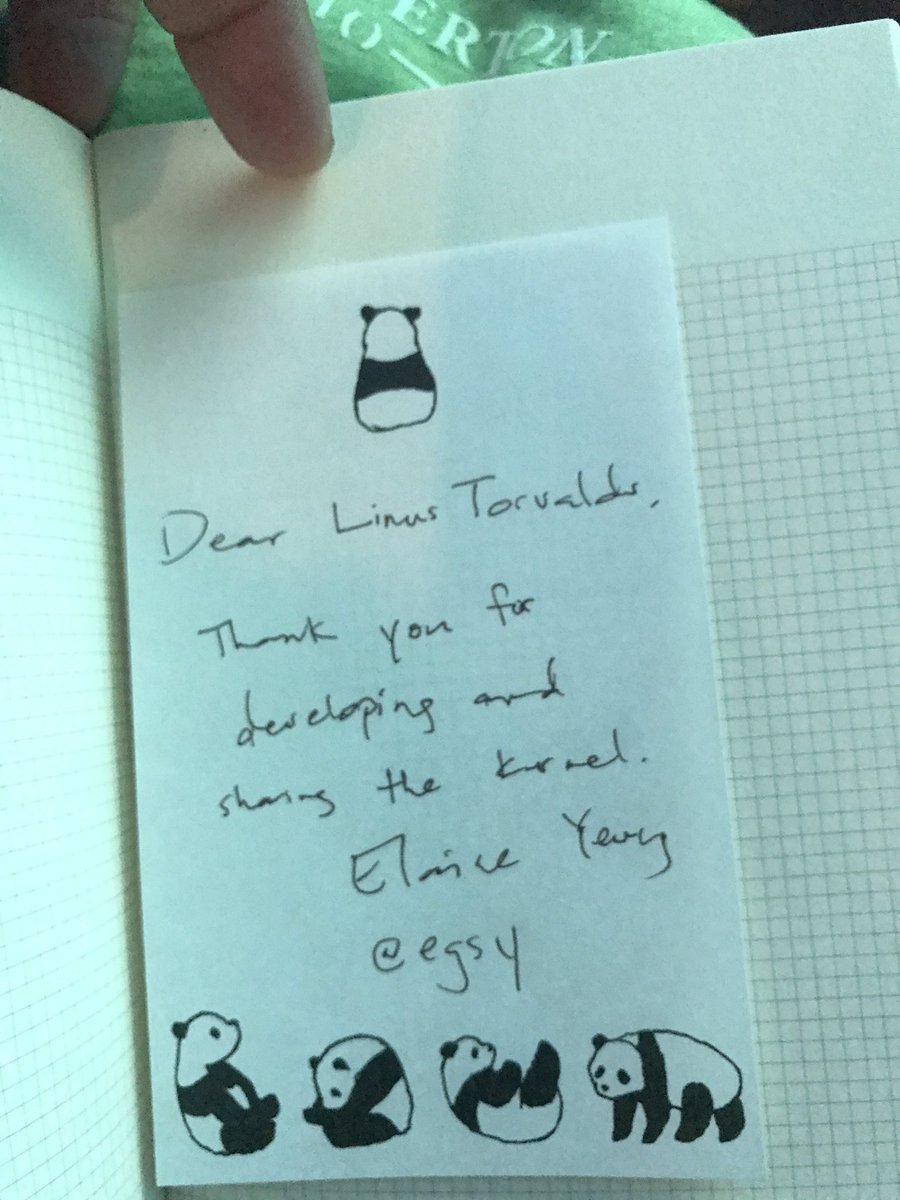 ERTON
Dear Linus Torvalds,
Thank you for
developing and
sharing the kernel.
Elaine Yeung
@egsy